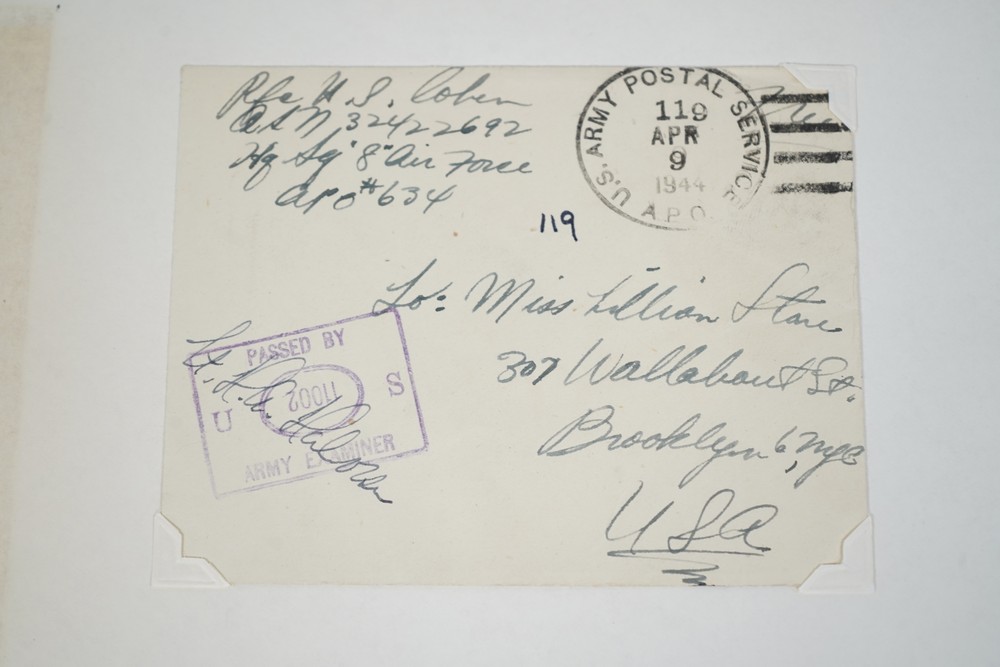 Pfc H. S. Cohen
ASN 32422692
Hq Sq 8" Air Force
APO #634
U.S. ARMY POSTAL SERVICE
119
APR
9
1944
A.P.O.
Free
119
To: Miss Lillian
307 Wallabout St.
Brooklyn 6, NYC
USA
PASSED BY
U S
11002
ARMY EXAMINER
Lt. H.A.